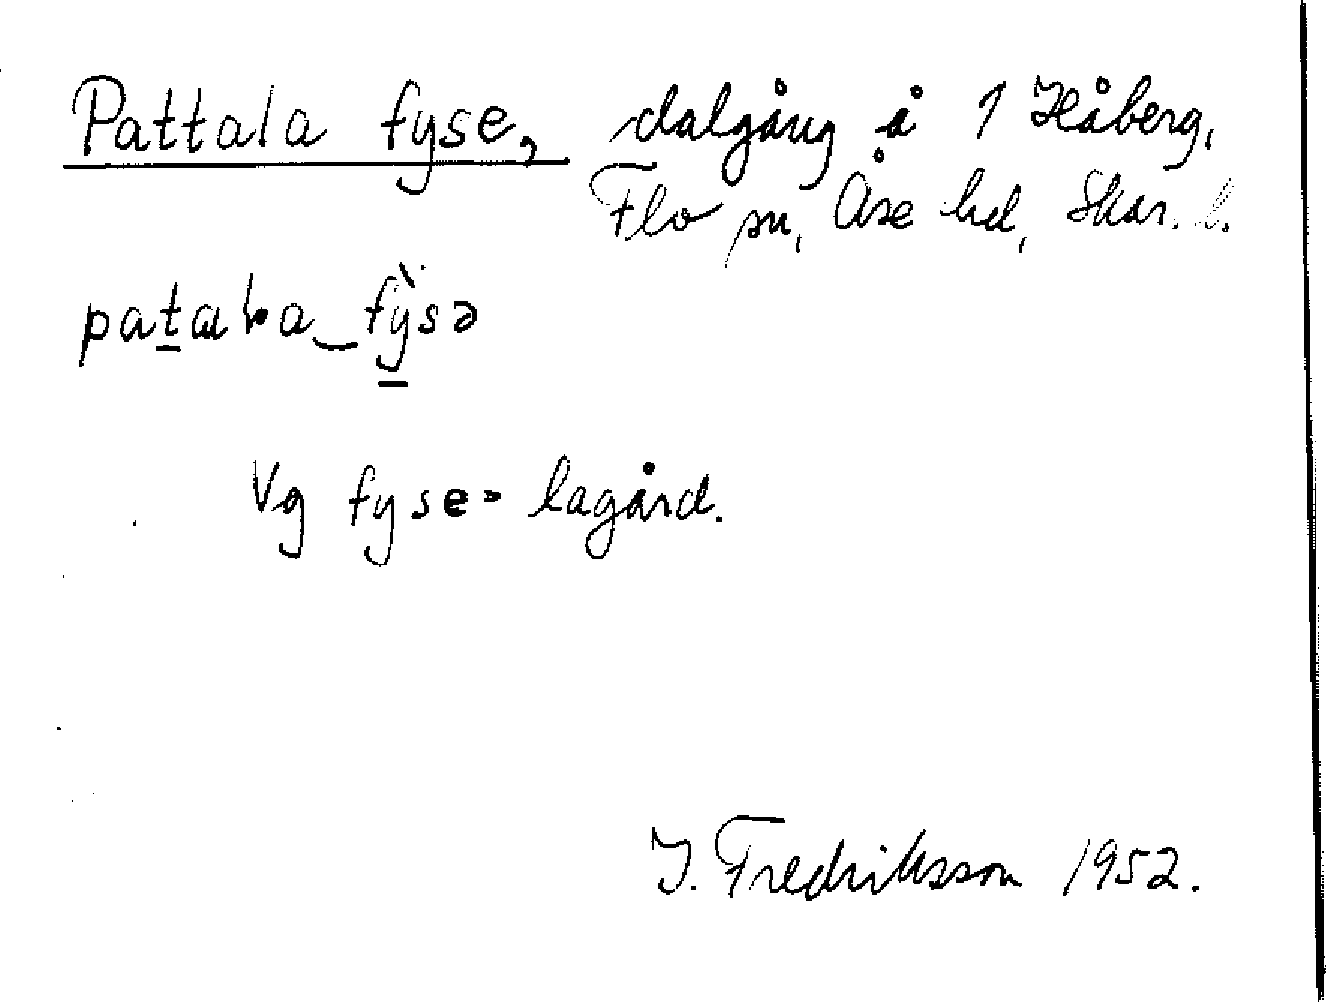 Pattala fyse, dalgång å 1 Håberg,
Flo sn, Åse hd, Skar. l.
Vg fyse = lagård.
I. Fredriksson 1952.